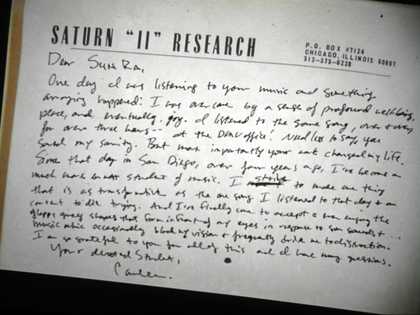 SATURN "II" RESEARCH
P.O. BOX #7124
CHICAGO, ILLINOIS 60607
Dear Sun Ra,
One day I was listening to your music and something
amazing happened. I was overcome by a sense of profound wellbeing,
peace, and eventually, joy. I listened to the same song, over & over
for over three hours -- at the DMV office! Needless to say, you
saved my sanity. But more importantly your art changed my life.
Since that day in San Diego, over four years ago, I've become a
much more student of music. I strive to make one thing
that is as transformative as the one song I listened to that day & am
content to die trying. And I've finally come to accept & even enjoy the
shapes that form in front of my eyes in response to some sounds &
music while occasionally blocking vision & frequently drive me to distraction.
I am so grateful to you for all of this and I have many questions.
Your devoted student,